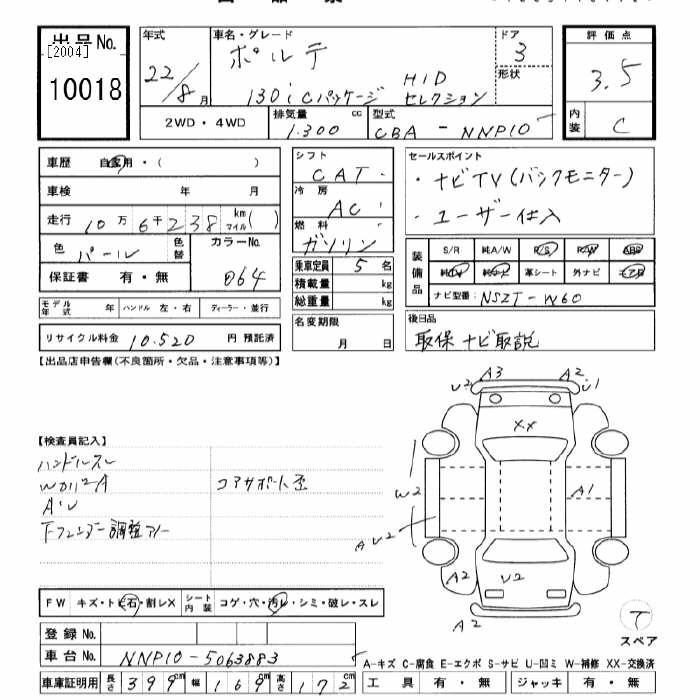 出品No.
[2004]
10018
年式
22/8月
車名・グレード
ポルテ
130i Cパッケージ HID セレクション
ドア
3
形状
評価点
3.5
内装
C
2WD・4WD
排気量
1.300 cc
型式
CBA - NNP10
車歴 自家用・( )
車検 年 月
走行 10万6千238 km マイル( )
色 パール 色替
カラーNo. 064
保証書 有・無
シフト
CAT
冷房
AC
燃料
ガソリン
乗車定員 5名
積載量 kg
総重量 kg
セールスポイント
・ナビTV(バックモニター)
・ユーザー仕入
装備品
S/R 純A/W P/S P/W ABS
革シート 外ナビ
ナビ型番: NSZT-W60
モデル年式 年 ハンドル 左・右 ディーラー・並行
リサイクル料金 10.520 円 預託済
名変期限
月 日
後日品
取保 ナビ取説
【出品店申告欄(不良箇所・欠品・注意事項等)】
【検査員記入】
ハンドルスレ
コアサポート歪
U2 A3 A2 U1
XX
W2
A1
AU2
A2
U2
A2
FW キズ・トビ石・割レX シート内装 コゲ・穴・汚レ・シミ・破レ・スレ
T
スペア
登録No.
車台No. NNP10-5063883
A-キズ C-腐食 E-エクボ S-サビ U-凹ミ W-補修 XX-交換済
車庫証明用 長さ 399cm 幅 169cm 高さ 172cm
工具 有・無 ジャッキ 有・無